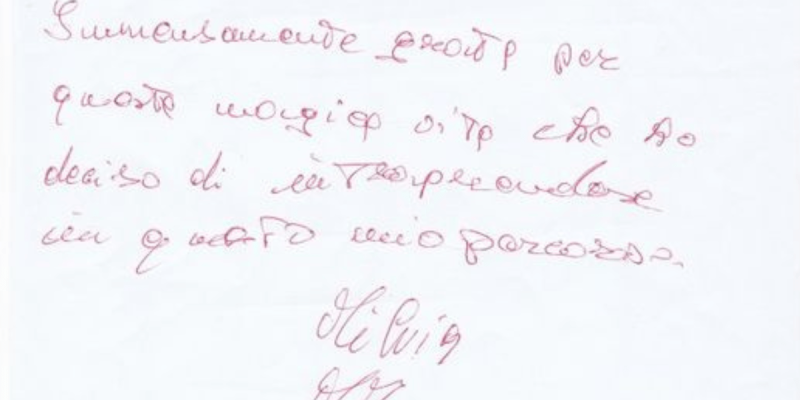 Immensamente grata per
questa magica vita che ho
deciso di intraprendere
in questo mio percorso.
Silvia